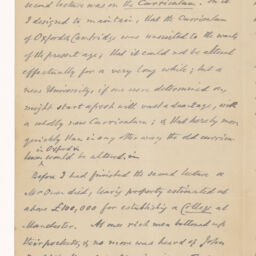 second lecture was on the Curriculum. In it
I designed to maintain, that the Curriculum
of Oxford & Cambridge was unsuited to the wants
of the present age; that it could not be altered
effectually for a very long while; but a
new University, if we were determined on,
might start afresh with vast advantage, with
a wholly new Curriculum; & that hereby more
quickly than in any other way the old curricu-
in Oxford &
lum would be altered.
Before I had finished the second lecture a
Mr Owen died, leaving property estimated at
above £100,000 for establishing a College at
Manchester. At once rich men buttoned up
their pockets, & no more was heard of John